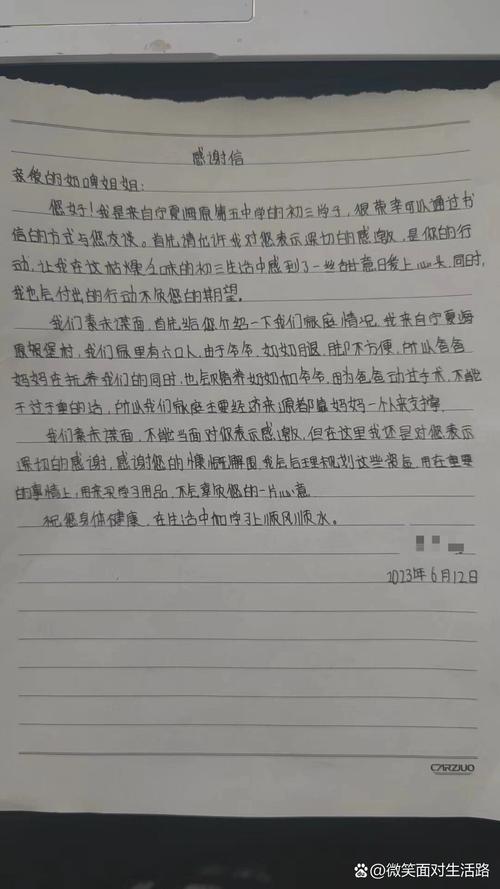 感谢信
亲爱的奶啤姐姐:
您好!我是来自宁夏海原第五中学的初三学子,很荣幸可以通过书
信的方式与您交谈。首先请允许我对您表示深切的感激,是你的行
动,让我在这枯燥乏味的初三生活中感到了一丝甜意日爱上心头,同时,
我也会付出的行动不负您的期望。
我们素未谋面,首先给您介绍一下我们家庭情况,我来自宁夏海
原 堡村,我们家里有六口人,由于爷爷,奶奶 退,脚不方便,所以爸爸
妈妈在抚养我们的同时,也会赡养奶奶和爷爷,因为爸爸动过手术,不能
干过于重的活,所以我们家庭主要经济来源都靠妈妈一个人来支撑,
我们素未谋面,不能当面对你表示感激,但在这里我还是对您表示
深切的感谢,感谢您的慷慨解囊,我会合理规划这些资金,用在重要
的事情上,用来买学习用品,不会辜负您的一片心意
祝您身体健康,在生活中和学习上顺风顺水。
2023年6月12日
CARZJUO
微笑面对生活路